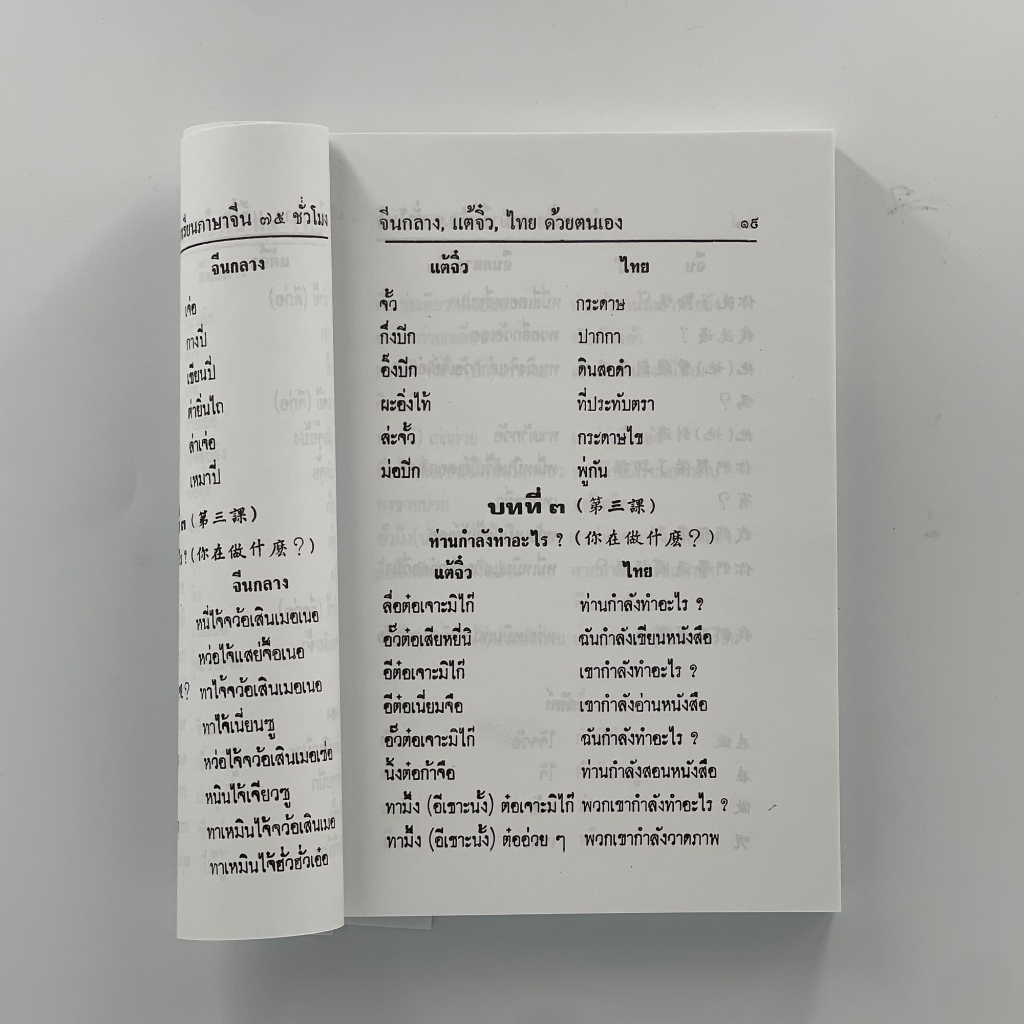 เรียนภาษาจีน ๗๕ ชั่วโมง
จีนกลาง
เจ่อ
กางปี่
เชียนปี่
ต่ายิ่นไถ
ล่าเจ่อ
เหมาปี่
๓ (第三課)
? (你在做什麼?)
จีนกลาง
หนี่ไจ้จว้อเสินเมอเนอ
หว่อไจ้แสย่จื้อเนอ
ทาไจ้จว้อเสินเมอเนอ
ทาไจ้เนี่ยนซู
หว่อไจ้จว้อเสินเมอเซ่อ
หนินไจ้เจียวซู
ทาเหมินไจ้จว้อเสินเมอ
ทาเหมินไจ้ฮั่วฮั่วเอ๋อ
จีนกลาง, แต้จิ๋ว, ไทย ด้วยตนเอง ๑๙
แต้จิ๋ว ไทย
จั้ว กระดาษ
กึ่งบีก ปากกา
อิ๊งบีก ดินสอดำ
ผะอิ่งไท้ ที่ประทับตรา
ล่ะจั้ว กระดาษไข
ม่อบีก พู่กัน
บทที่ ๓ (第三課)
ท่านกำลังทำอะไร ? (你在做什麼?)
แต้จิ๋ว ไทย
ลื่อต๋อเจาะมิไก๊ ท่านกำลังทำอะไร ?
อั๊วต๋อเสียหยี่นิ ฉันกำลังเขียนหนังสือ
อีต๋อเจาะมิไก๊ เขากำลังทำอะไร ?
อีต๋อเนี่ยมจือ เขากำลังอ่านหนังสือ
อั๊วต๋อเจาะมิไก๊ ฉันกำลังทำอะไร ?
นั้งต๋อก้าจือ ท่านกำลังสอนหนังสือ
ทามึ้ง (อีเชาะนั้ง) ต๋อเจาะมิไก๊ พวกเขากำลังทำอะไร ?
ทามึ้ง (อีเชาะนั้ง) ต๋ออ่วย ๆ พวกเขากำลังวาดภาพ